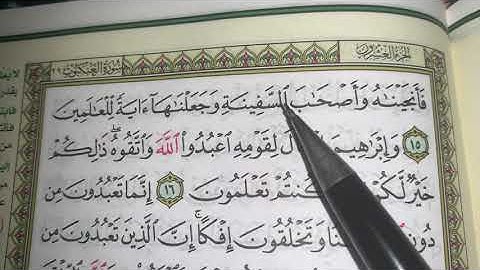 الجزء العشرون سورة العنكبوت ٢٩
فَأَنجَيْنَٰهُ وَأَصْحَٰبَ ٱلسَّفِينَةِ وَجَعَلْنَٰهَآ ءَايَةً لِّلْعَٰلَمِينَ
١٥ وَإِبْرَٰهِيمَ قَالَ لِقَوْمِهِ ٱعْبُدُوا۟ ٱللَّهَ وَٱتَّقُوهُ ۖ ذَٰلِكُمْ
خَيْرٌ لَّكُمْ كُنتُمْ تَعْلَمُونَ ١٦ إِنَّمَا تَعْبُدُونَ مِن
دُونِ وَتَخْلُقُونَ إِفْكًا ۚ إِنَّ ٱلَّذِينَ تَعْبُدُونَ مِن